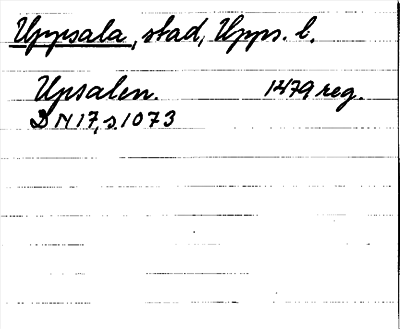 Uppsala, stad, Upps. l.
Upsalen. 1479 reg.
DN 17, s. 1073